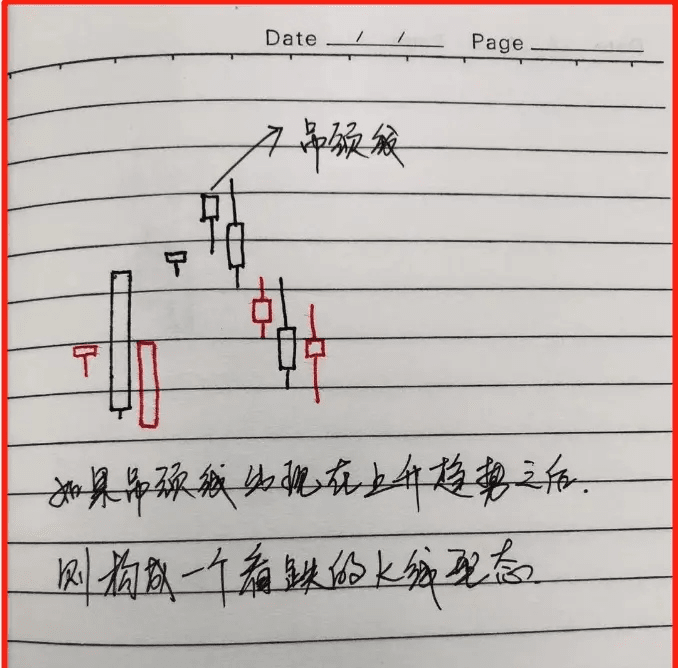 Date / / Page
吊颈线
如果吊颈线出现在上升趋势之后.
则构成一个看跌的K线形态.